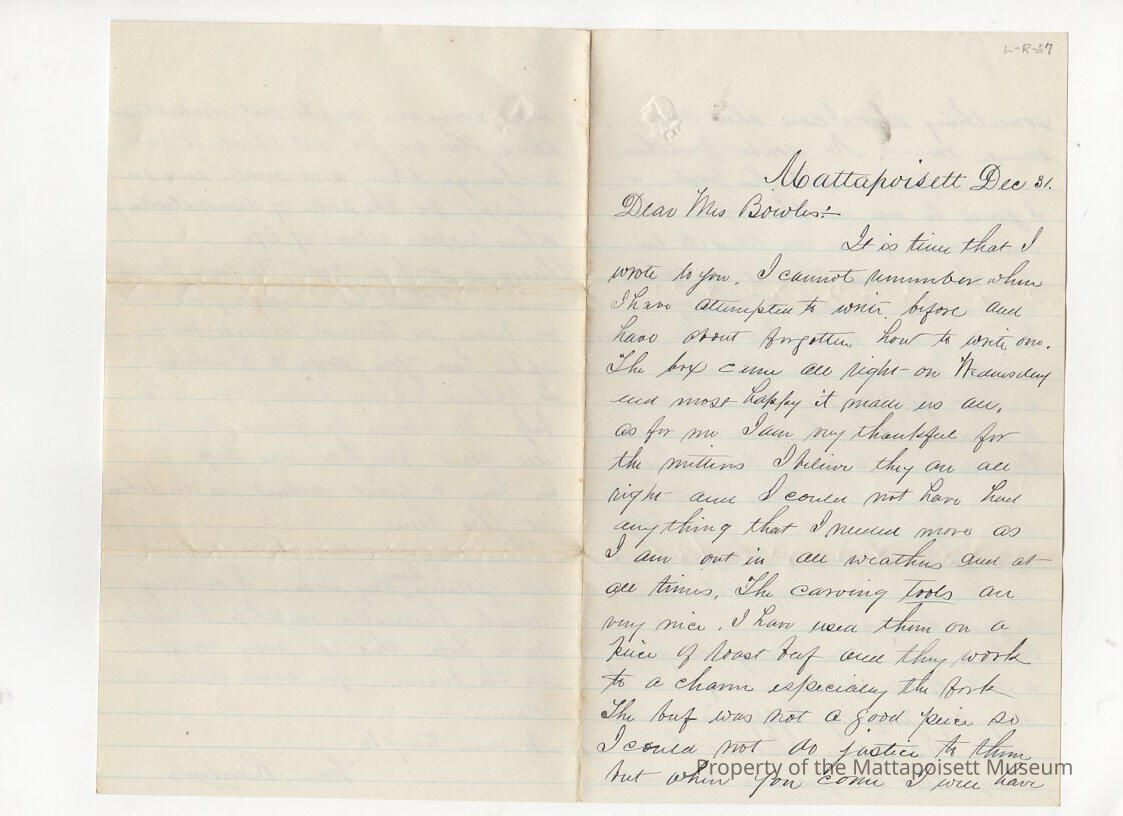 L-R-27
Mattapoisett Dec 31.
Dear Mrs Bowles:-
It is time that I
wrote to you. I cannot remember when
I have attempted to write before and
have about forgotten how to write one.
The box came all right on Wednesday
and most happy it made us all,
as for me I am very thankful for
the mittens I believe they are all
right and I could not have had
anything that I needed more as
I am out in all weathers and at
all times. The carving tools are
very nice. I have used them on a
piece of roast beef and they work
to a charm especially the fork
The beef was not a good piece so
I could not do justice to them
but when you come I will have
Property of the Mattapoisett Museum